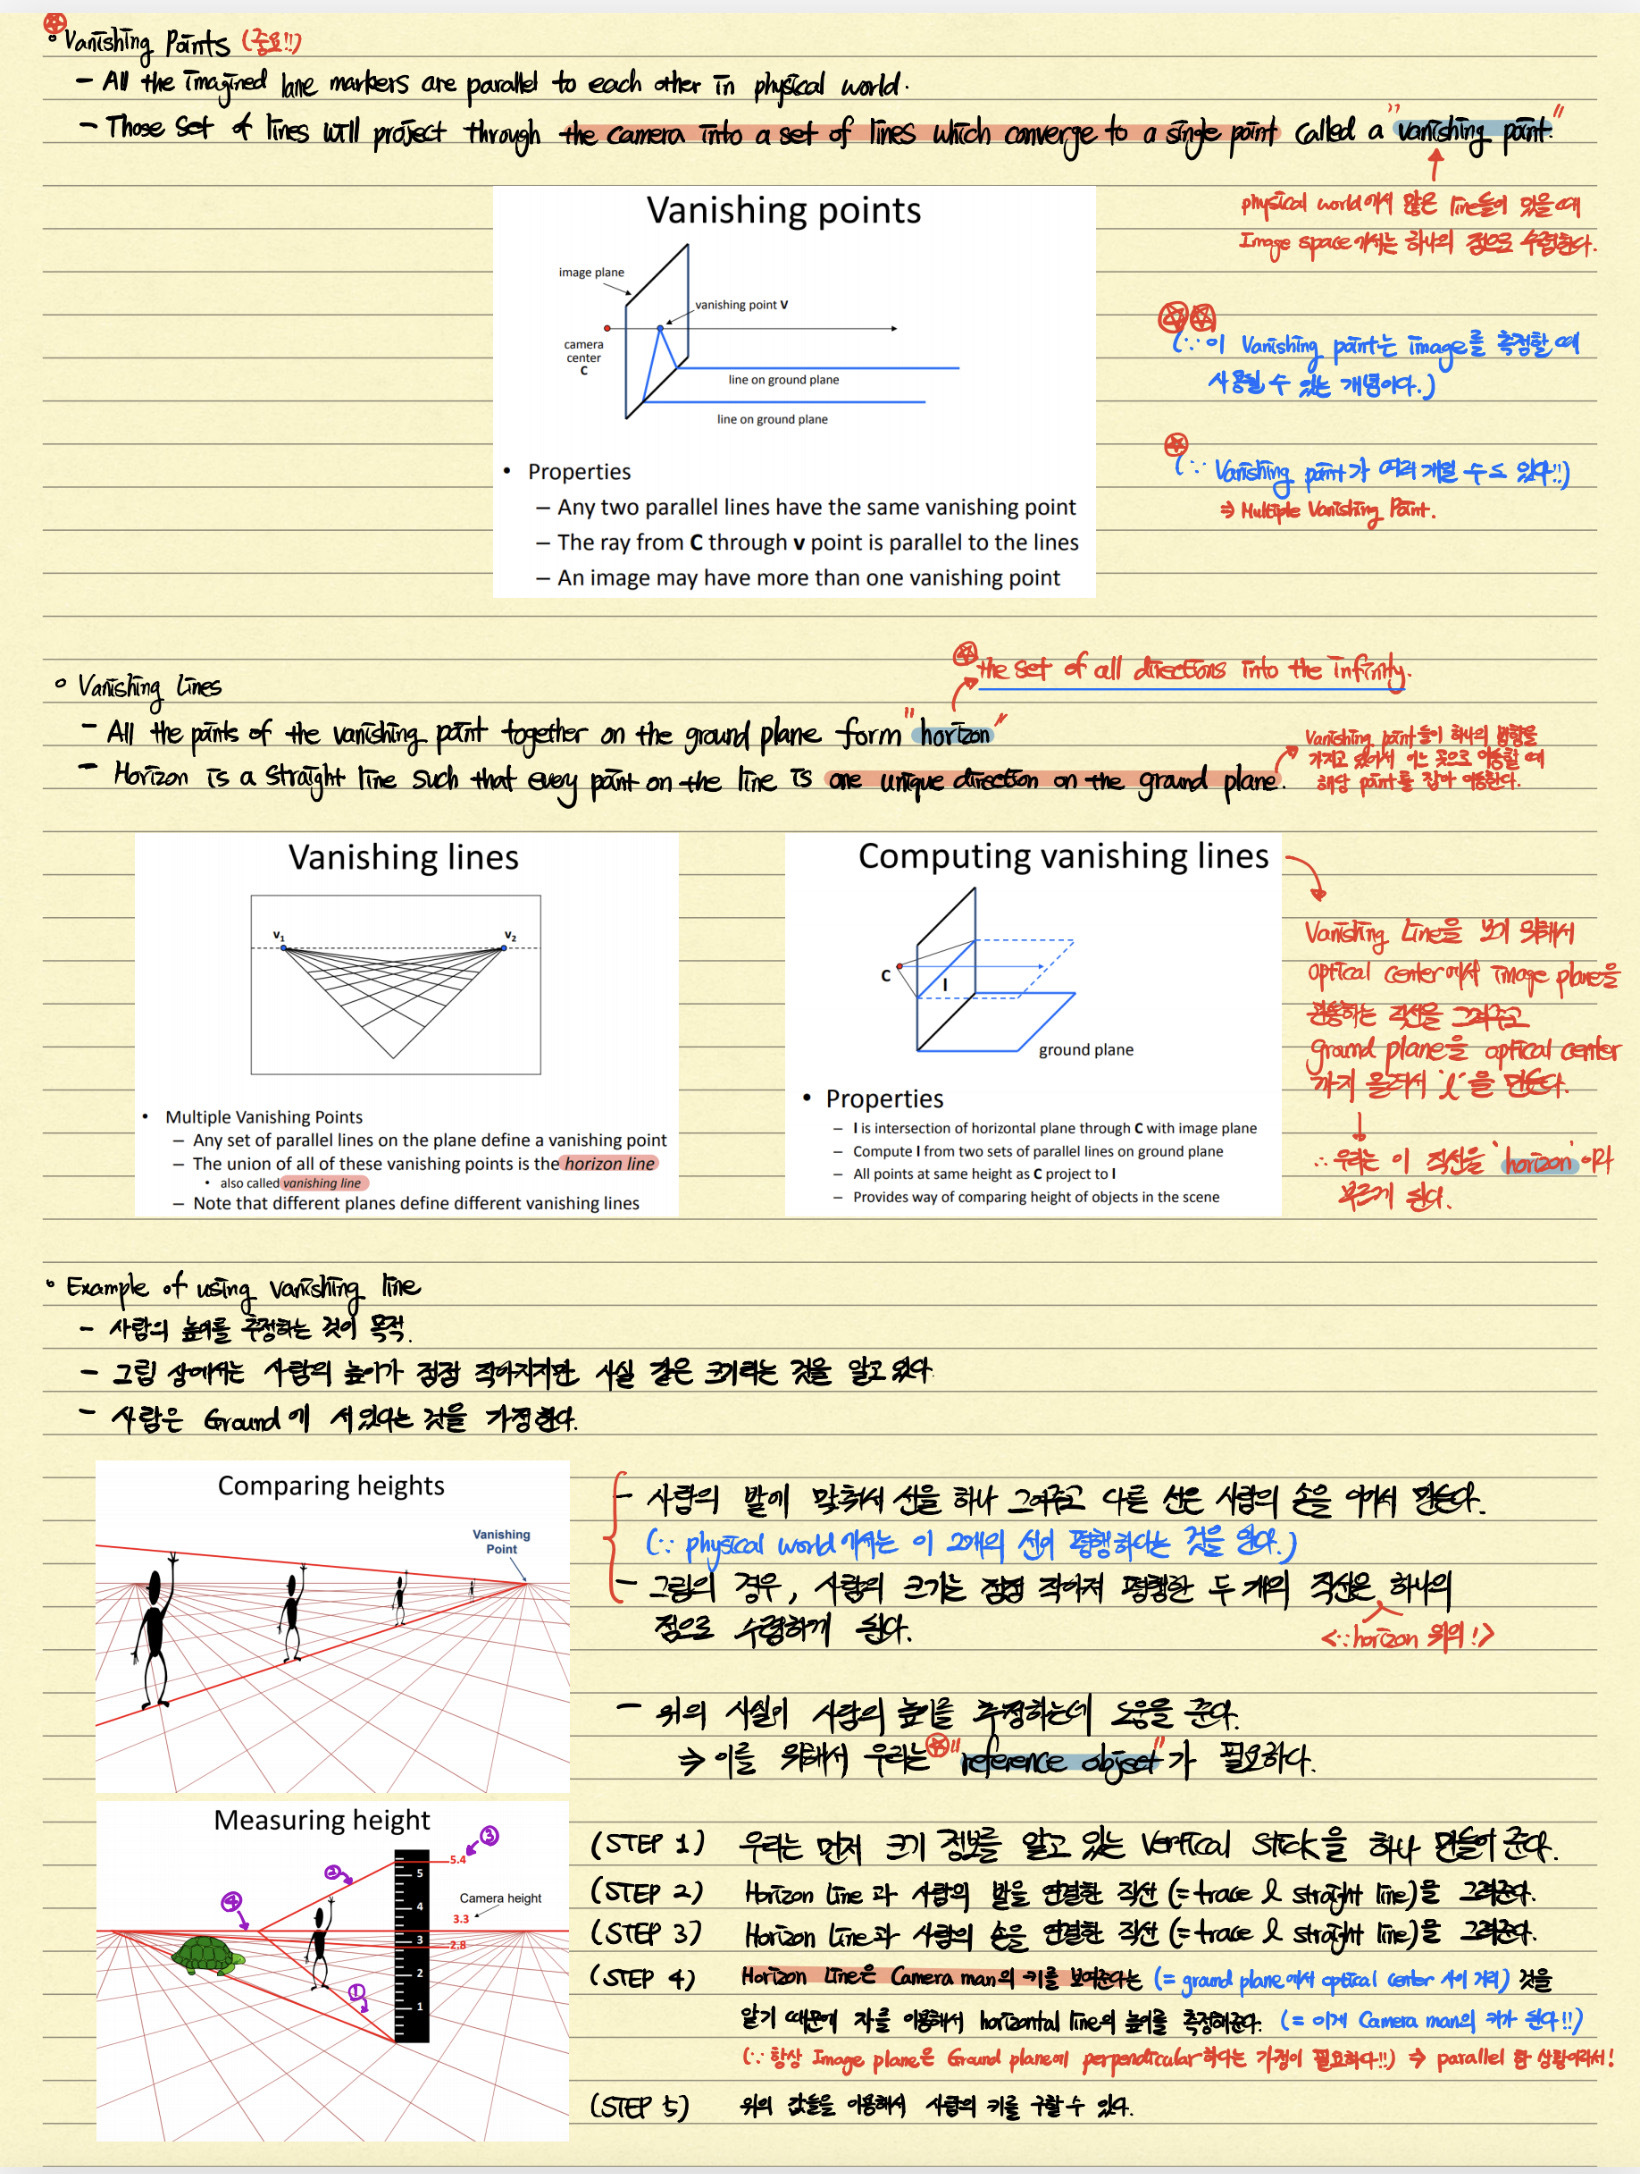 ° Vanishing Points (중요!!)
- All the imagined lane markers are parallel to each other in physical world.
- Those set of lines will project through the camera into a set of lines which converge to a single point called a "vanishing point."
physical world에서 많은 line들이 있을 때
Image space에서는 하나의 점으로 수렴한다.
Vanishing points
image plane
vanishing point V
camera
center
C
line on ground plane
line on ground plane
(∵ 이 Vanishing point는 image를 측정할 때
사용될 수 있는 개념이다.)
(∵ Vanishing point가 여러 개일 수도 있다!!)
⇒ Multiple Vanishing Point.
• Properties
– Any two parallel lines have the same vanishing point
– The ray from C through v point is parallel to the lines
– An image may have more than one vanishing point
the set of all directions into the infinity.
° Vanishing Lines
- All the points of the vanishing point together on the ground plane form "horizon"
- Horizon is a straight line such that every point on the line is one unique direction on the ground plane.
Vanishing point들이 하나의 방향을
가지고 있어서 어느 곳으로 이동할 때
해당 point를 잡아 이동한다.
Vanishing lines
v1
v2
• Multiple Vanishing Points
– Any set of parallel lines on the plane define a vanishing point
– The union of all of these vanishing points is the horizon line
• also called vanishing line
– Note that different planes define different vanishing lines
Computing vanishing lines
C
l
ground plane
• Properties
– l is intersection of horizontal plane through C with image plane
– Compute l from two sets of parallel lines on ground plane
– All points at same height as C project to l
– Provides way of comparing height of objects in the scene
Vanishing Line을 보기 위해서
optical center에서 image plane을
관통하는 직선을 그려주고
ground plane을 optical center
까지 올려서 'l'을 만든다.
∴ 우리는 이 직선을 'horizon'이라
부르게 된다.
° Example of using vanishing line
- 사람의 높이를 추정하는 것이 목적.
- 그림 상에서는 사람의 높이가 점점 작아지지만 사실 같은 크기라는 것을 알고 있다.
- 사람은 Ground에 서있다는 것을 가정한다.
Comparing heights
Vanishing
Point
- 사람의 발에 맞춰서 선을 하나 그어주고 다른 선은 사람의 손을 이어서 만든다.
(∵ physical world에서는 이 2개의 선이 평행하다는 것을 안다.)
- 그림의 경우, 사람의 크기는 점점 작아져 평행한 두 개의 직선은 하나의
점으로 수렴하게 된다.
<∵ horizon 위의!>
- 위의 사실이 사람의 높이를 추정하는데 도움을 준다.
⇒ 이를 위해서 우리는 "reference object"가 필요하다.
Measuring height
③
5.4
②
5
④
4
Camera height
3.3
3
2.8
2
①
1
(STEP 1) 우리는 먼저 크기 정보를 알고 있는 Vertical Stick을 하나 만들어 준다.
(STEP 2) Horizon Line과 사람의 발을 연결한 직선 (= trace l straight line)을 그려준다.
(STEP 3) Horizon Line과 사람의 손을 연결한 직선 (= trace l straight line)을 그려준다.
(STEP 4) Horizon Line은 Camera man의 키를 보여준다는 (= ground plane에서 optical center 사이 거리) 것을
알기 때문에 자를 이용해서 horizontal line의 높이를 측정해준다. (= 이게 Camera man의 키가 된다!!)
(∵ 항상 Image plane은 Ground plane에 perpendicular하다는 가정이 필요하다!!) ⇒ parallel 한 상황이라서!
(STEP 5) 위의 값들을 이용해서 사람의 키를 구할 수 있다.